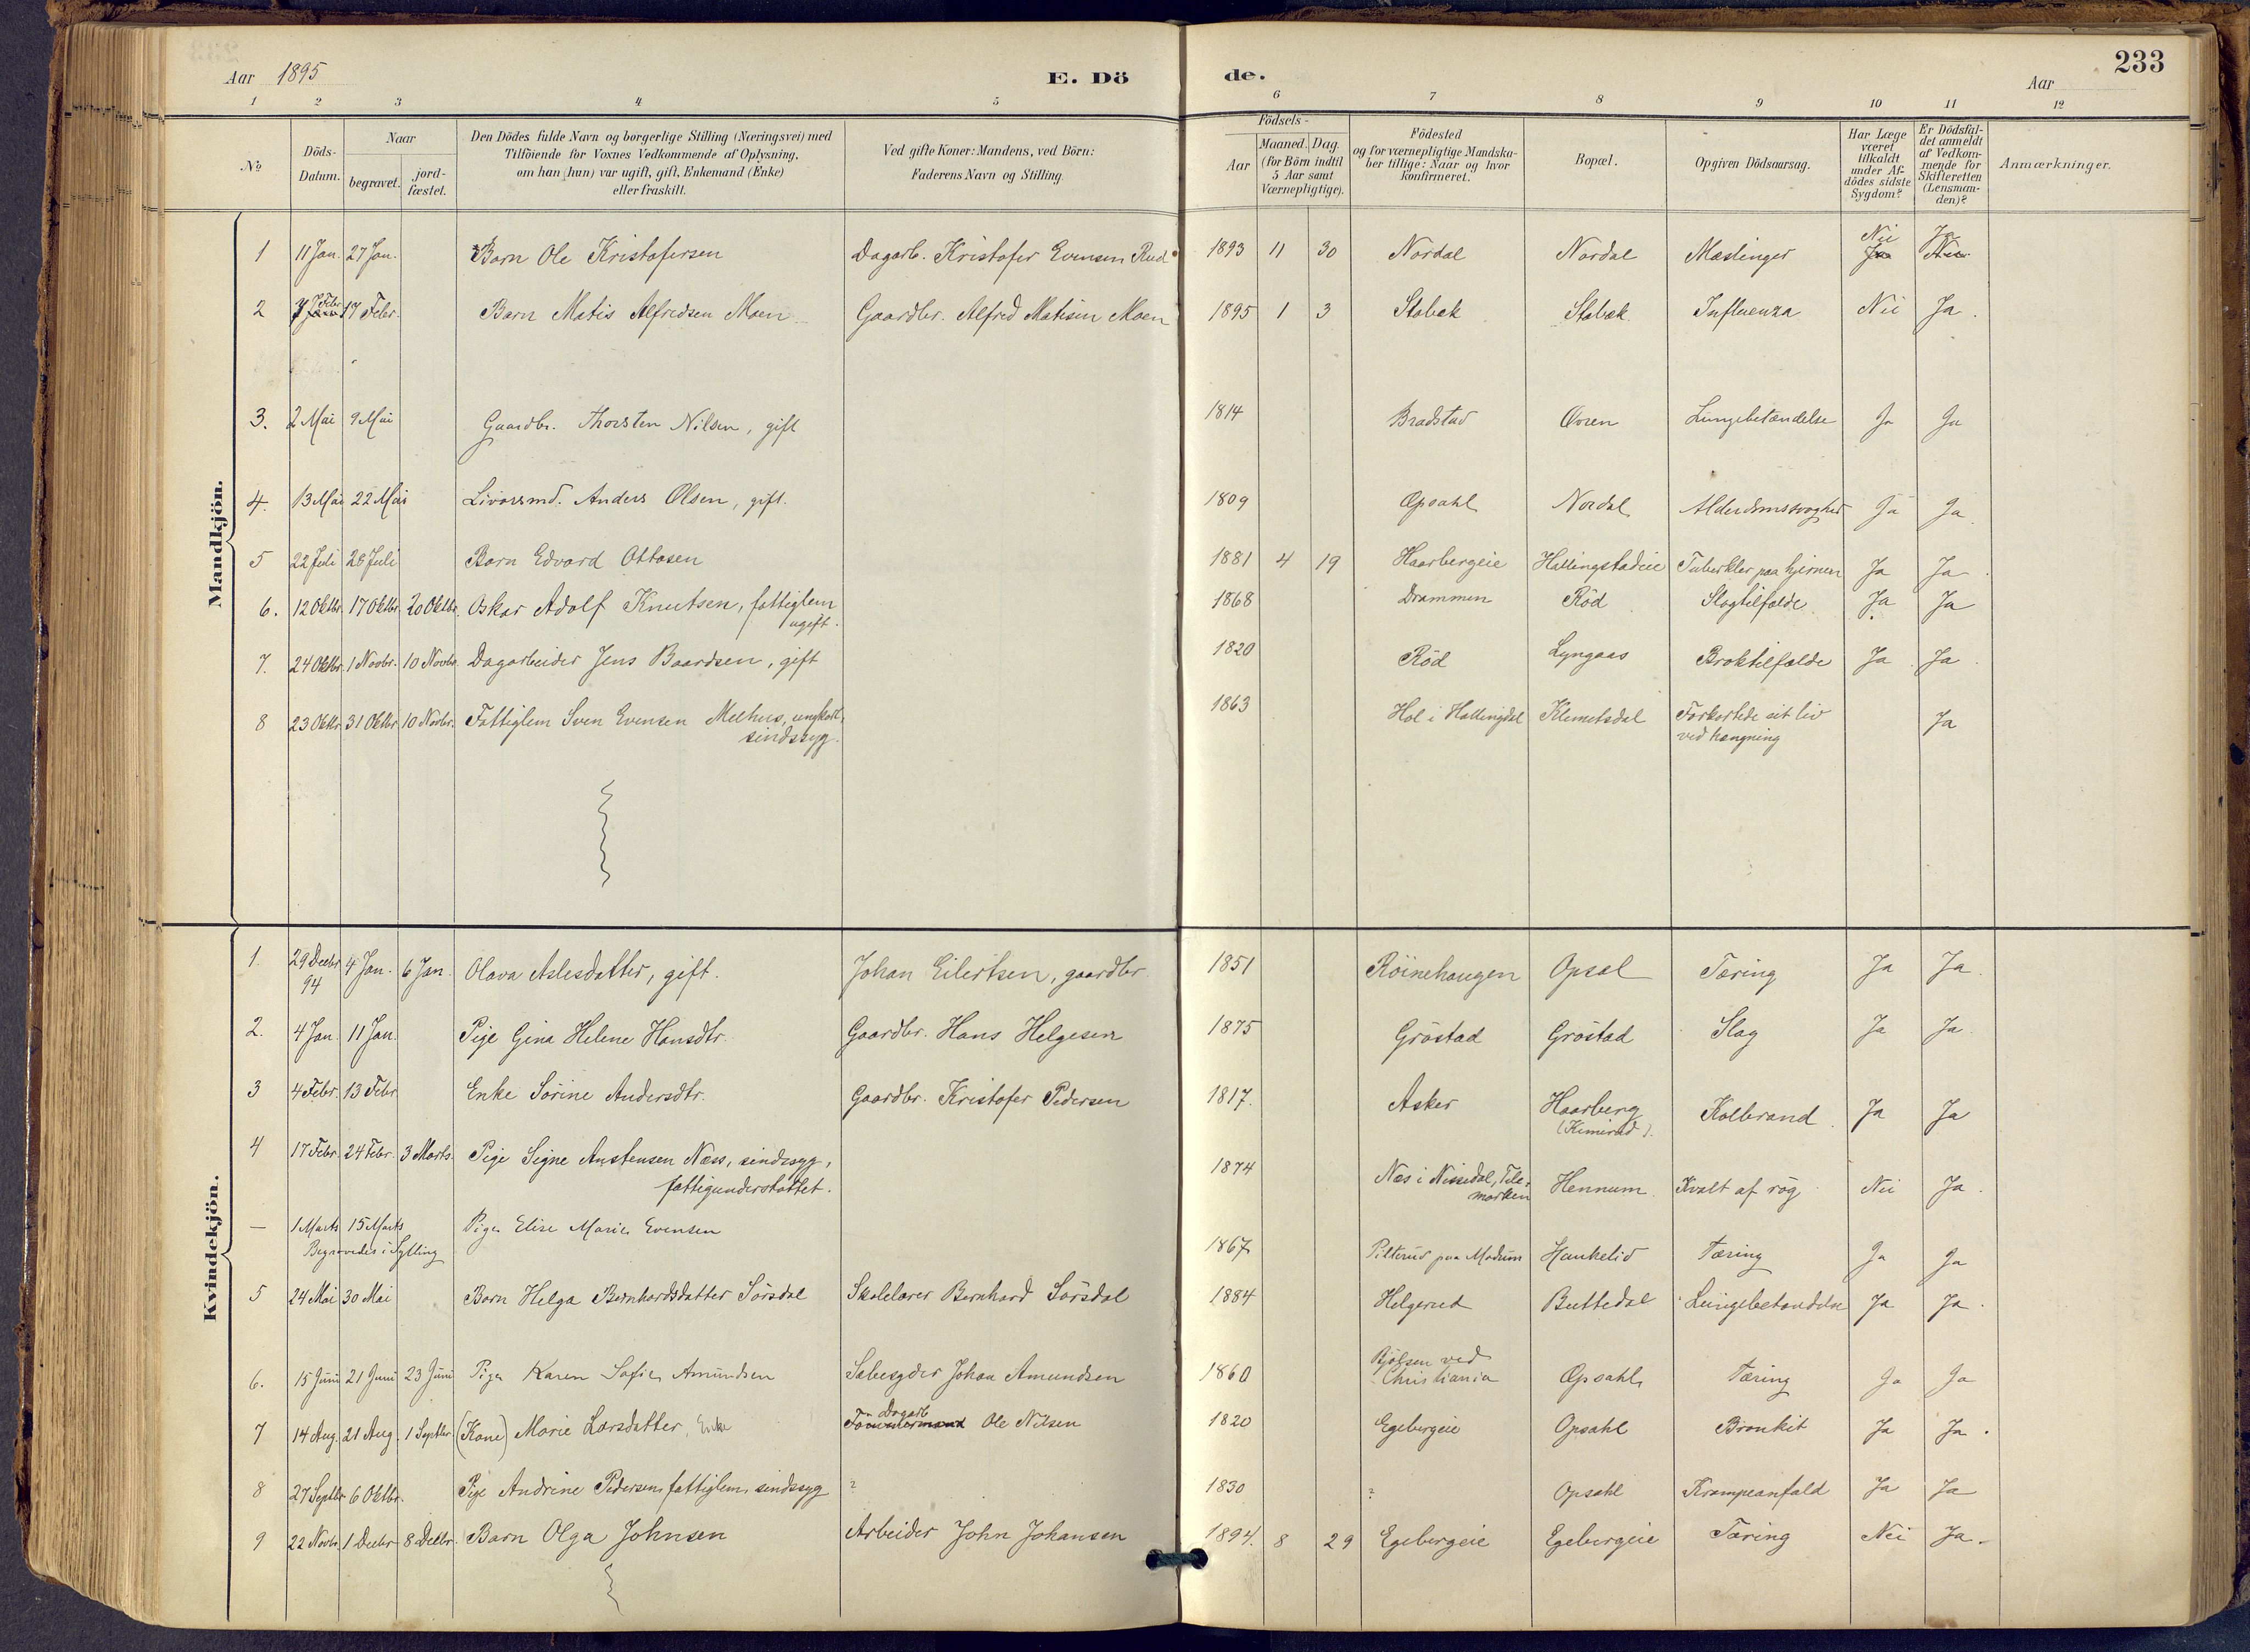 Aar 1895
E. Döde.
Aar
233
1 2 3 4 5 6 7 8 9 10 11 12
No
Döds-Datum.
Naar
begravet.
jordfæstet.
Den Dödes fulde Navn og borgerlige Stilling (Næringsvei) med
Tilföiende for Voxnes Vedkommende af Oplysning,
om han (hun) var ugift, gift, Enkemand (Enke)
eller fraskilt.
Ved gifte Koner: Mandens, ved Börn:
Faderens Navn og Stilling.
Födsels-
Aar
Maaned. Dag.
(for Börn indtil
5 Aar samt
Værnepligtige).
Födested
og for værnepligtige Mandska-
ber tillige: Naar og hvor
konfirmeret.
Bopæl.
Opgiven Dödsaarsag.
Har Læge
været
tilkaldt
under Af-
dödes sidste
Sygdom?
Er Dödsfal-
det anmeldt
af Vedkom-
mende for
Skifteretten
(Lensman-
den)?
Anmærkninger.
Mandkjön.
1 11 Jan. 27 Jan. Barn Ole Kristofersen Dagarb. Kristofer Evensen Rud 1893 11 30 Nordal Nordal Mæslinger Nei Ja
2 7 Febr 17 Febr. Barn Matis Alfredsen Moen Gaardbr. Alfred Matisen Moen 1895 1 3 Stabæk Stabæk Influenza Nei Ja.
3. 2 Mai 9 Mai Gaardbr. Thorsten Nilsen, gift 1814 Bradstad Ovren Lungebetændelse Ja Ja
4. 13 Mai 22 Mai Livørsmd. Anders Olsen, gift. 1809 Opsahl Nordal Alderdomssvaghed Ja Ja
5 22 Juli 28 Juli Barn Edvard Ottosen 1881 4 19 Haarbergeie Hallingstadeie Tuberkler paa hjernen Ja Ja
6. 12 Oktbr. 17 Oktbr. 20 Oktbr. Oskar Adolf Knutsen, fattiglem
ugift. 1868 Drammen Röd Slagtilfælde Ja Ja
7. 24 Oktbr. 1 Novbr. 10 Novbr. Dagarbeider Jens Baardsen, gift 1820 Röd Lyngaas Broktilfælde Ja Ja
8 23 Oktbr 31 Oktbr 10 Novbr. Fattiglem Sven Evensen Melhus, ungkarl,
sindssyg. 1863 Hol i Hallingdal Klemetsdal Forkortede sit liv
ved hængning Ja
Kvindekjön.
1. 29 Decbr 94 4 Jan. 6 Jan. Olava Aslesdatter, gift. Johan Eilertsen, gaardbr. 1851 Röinehaugen Opsal Tæring Ja Ja.
2. 4 Jan. 11 Jan. Pige Gina Helene Hansdtr. Gaardbr. Hans Helgesen 1875 Gröstad Gröstad Slag Ja Ja
3 4 Febr. 13 Febr. Enke Sörine Andersdtr. Gaardbr. Kristofer Pedersen 1817. Asker Haarberg
(Kimerud). Kolbrand. Ja Ja
4 17 Febr. 24 Febr. 3 Marts. Pige Signe Austensen Næss, sindssyg,
fattigunderstøttet. 1874 Næs i Nissedal, Tele-
marken Hennum Kvalt af røg Nei Ja.
— 1 Marts 15 Marts Pige Elise Marie Evensen
Begravedes i Sylling 1867 Pilterud paa Modum Haukelid Tæring Ja Ja
5 24 Mai 30 Mai Barn Helga Bernhardsdatter Sörsdal Skolelærer Bernhard Sörsdal 1884 Helgerud Buttedal Lungebetændelse Ja Ja.
6. 15 Juni 21 Juni 23 Juni Pige Karen Sofie Amundsen Sæbesyder Johan Amundsen 1860 Bjølsen ved
Christiania Opsahl Tæring Ja Ja
7 14 Aug. 21 Aug. 1 Septbr. (Kone) Marie Larsdatter, Enke Dagarb Tömmermand Ole Nilsen 1820 Egebergeie Opsahl Bronkit Ja Ja.
8 27 Septbr 6 Oktbr. Pige Andrine Pedersen, fattiglem, sindssyg ? 1830 ? Opsahl Krampeanfald Ja Ja
9 22 Novbr. 1 Decbr 8 Decbr. Barn Olga Johnsen Arbeider John Johansen 1894. 8 29 Egebergeie Egebergeie Tæring Nei Ja.